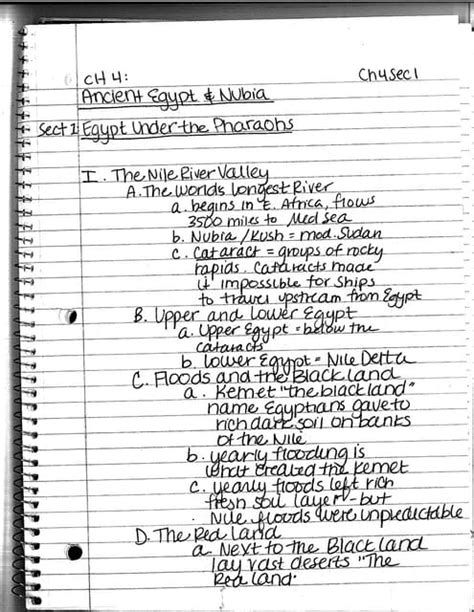 CH 4:
Ch4Sec1
Ancient Egypt & Nubia
Sect 1 Egypt Under the Pharaohs
I. The Nile River Valley
A. The Worlds Longest River
a. begins in E. Africa, flows
3500 miles to Med Sea
b. Nubia / Kush = mod. Sudan
c. Cataract = groups of rocky
rapids. Cataracts made
it impossible for ships
to travel upstream from Egypt
B. Upper and Lower Egypt
a. Upper Egypt = below the
cataracts
b. Lower Egypt = Nile Delta
C. Floods and the Black land
a. Kemet "the black land"
name Egyptians gave to
rich dark soil on banks
of the Nile
b. yearly flooding is
what created the Kemet
c. yearly floods left rich
fresh soil layer - but
Nile floods were unpredictable
D. The Red Land
a. Next to the Black Land
lay vast deserts "The
Red land.